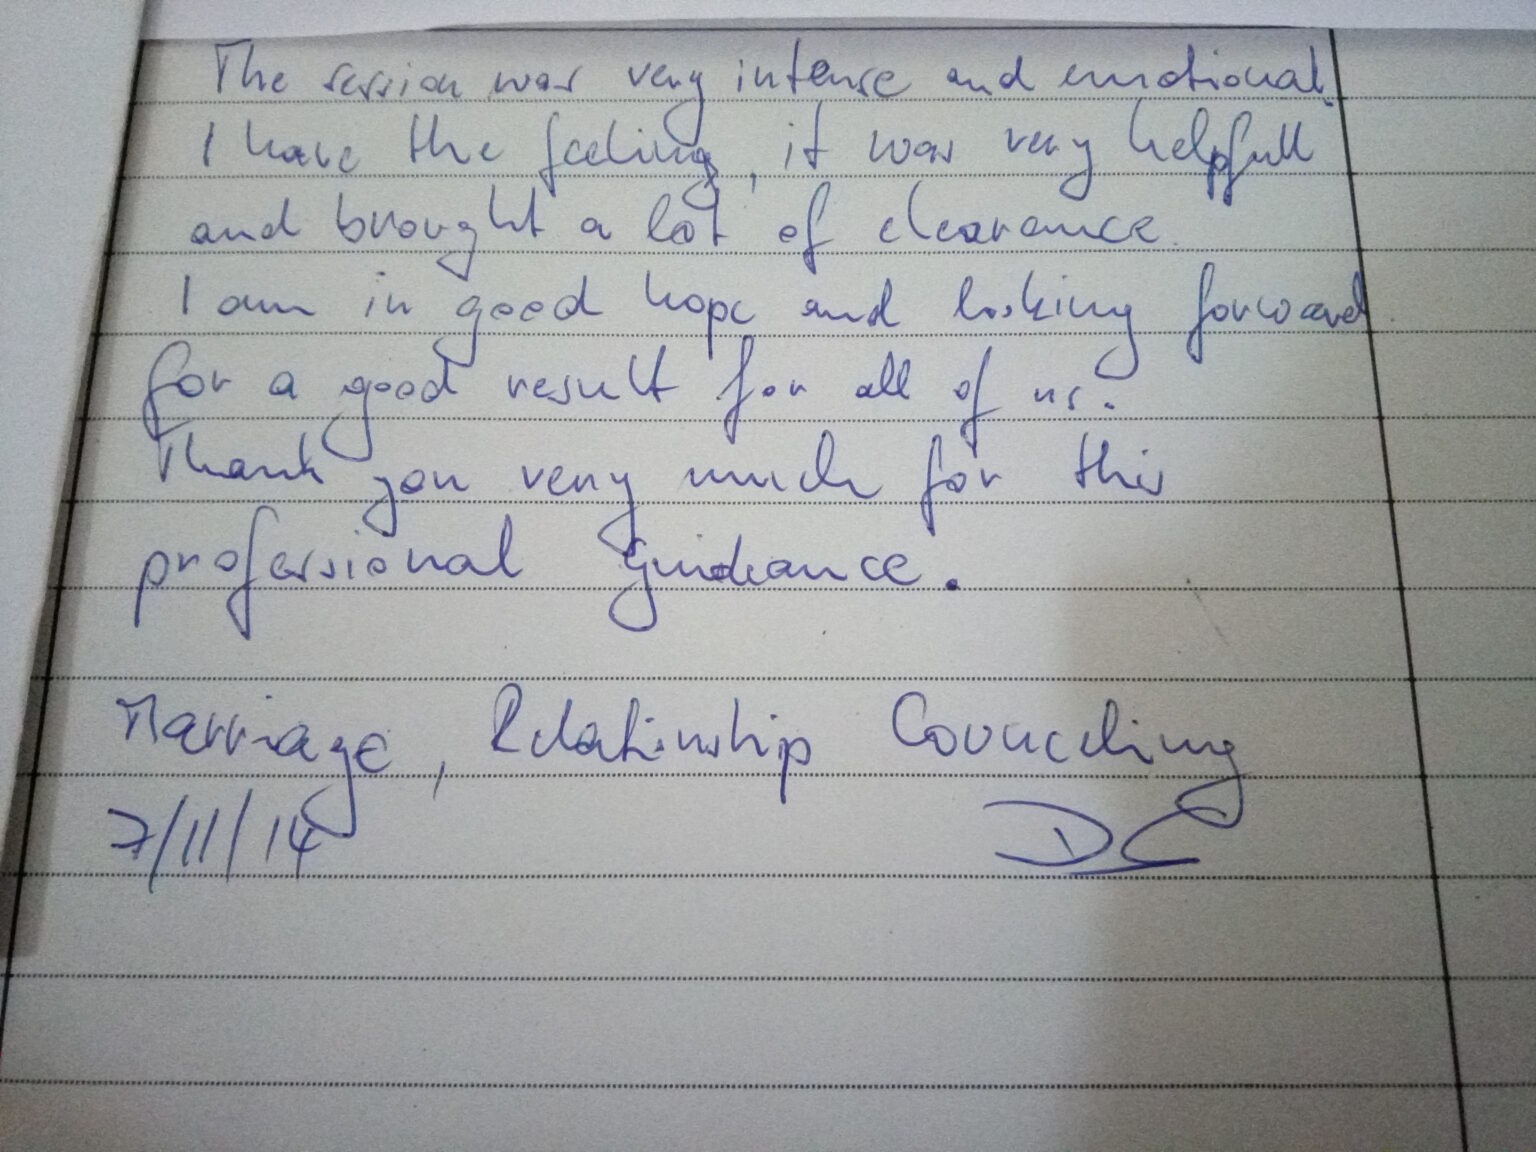 The session was very intense and emotional.
I have the feeling, it was very helpfull
and brought a lot of clearance.
I am in good hope and looking forward
for a good result for all of us.
Thank you very much for this
professional Guideance.
Marriage, Relationship Counceling
7/11/14 DC